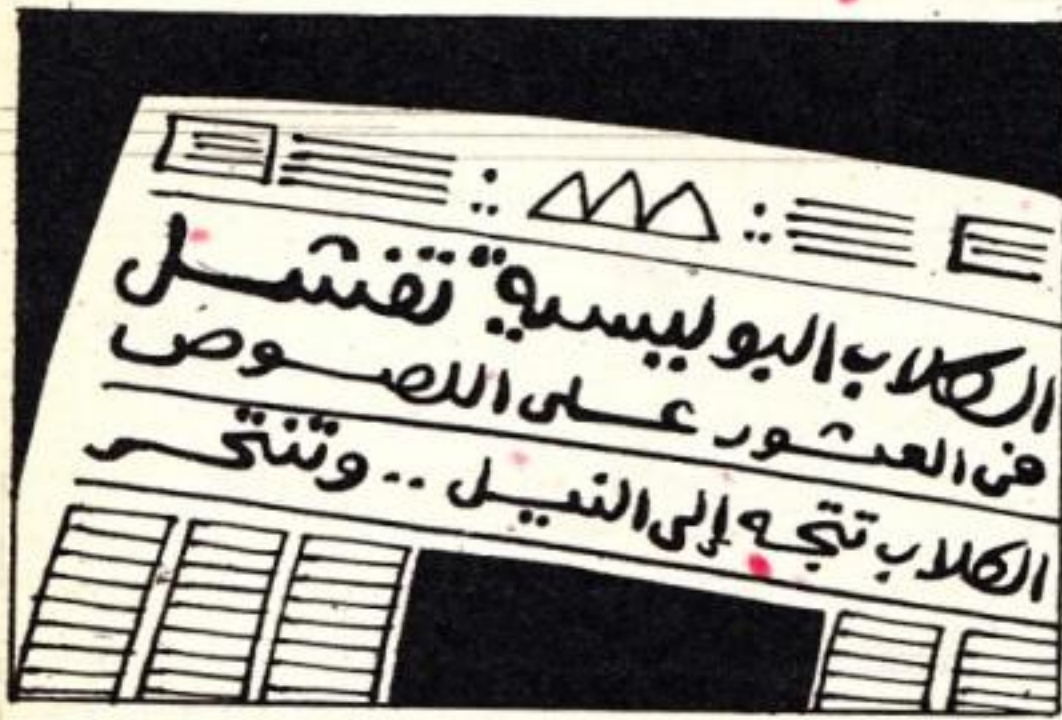 الكلاب البوليسية تفشل
فى العثور على اللصوص
الكلاب تتجه إلى النيل .. وتنتحر